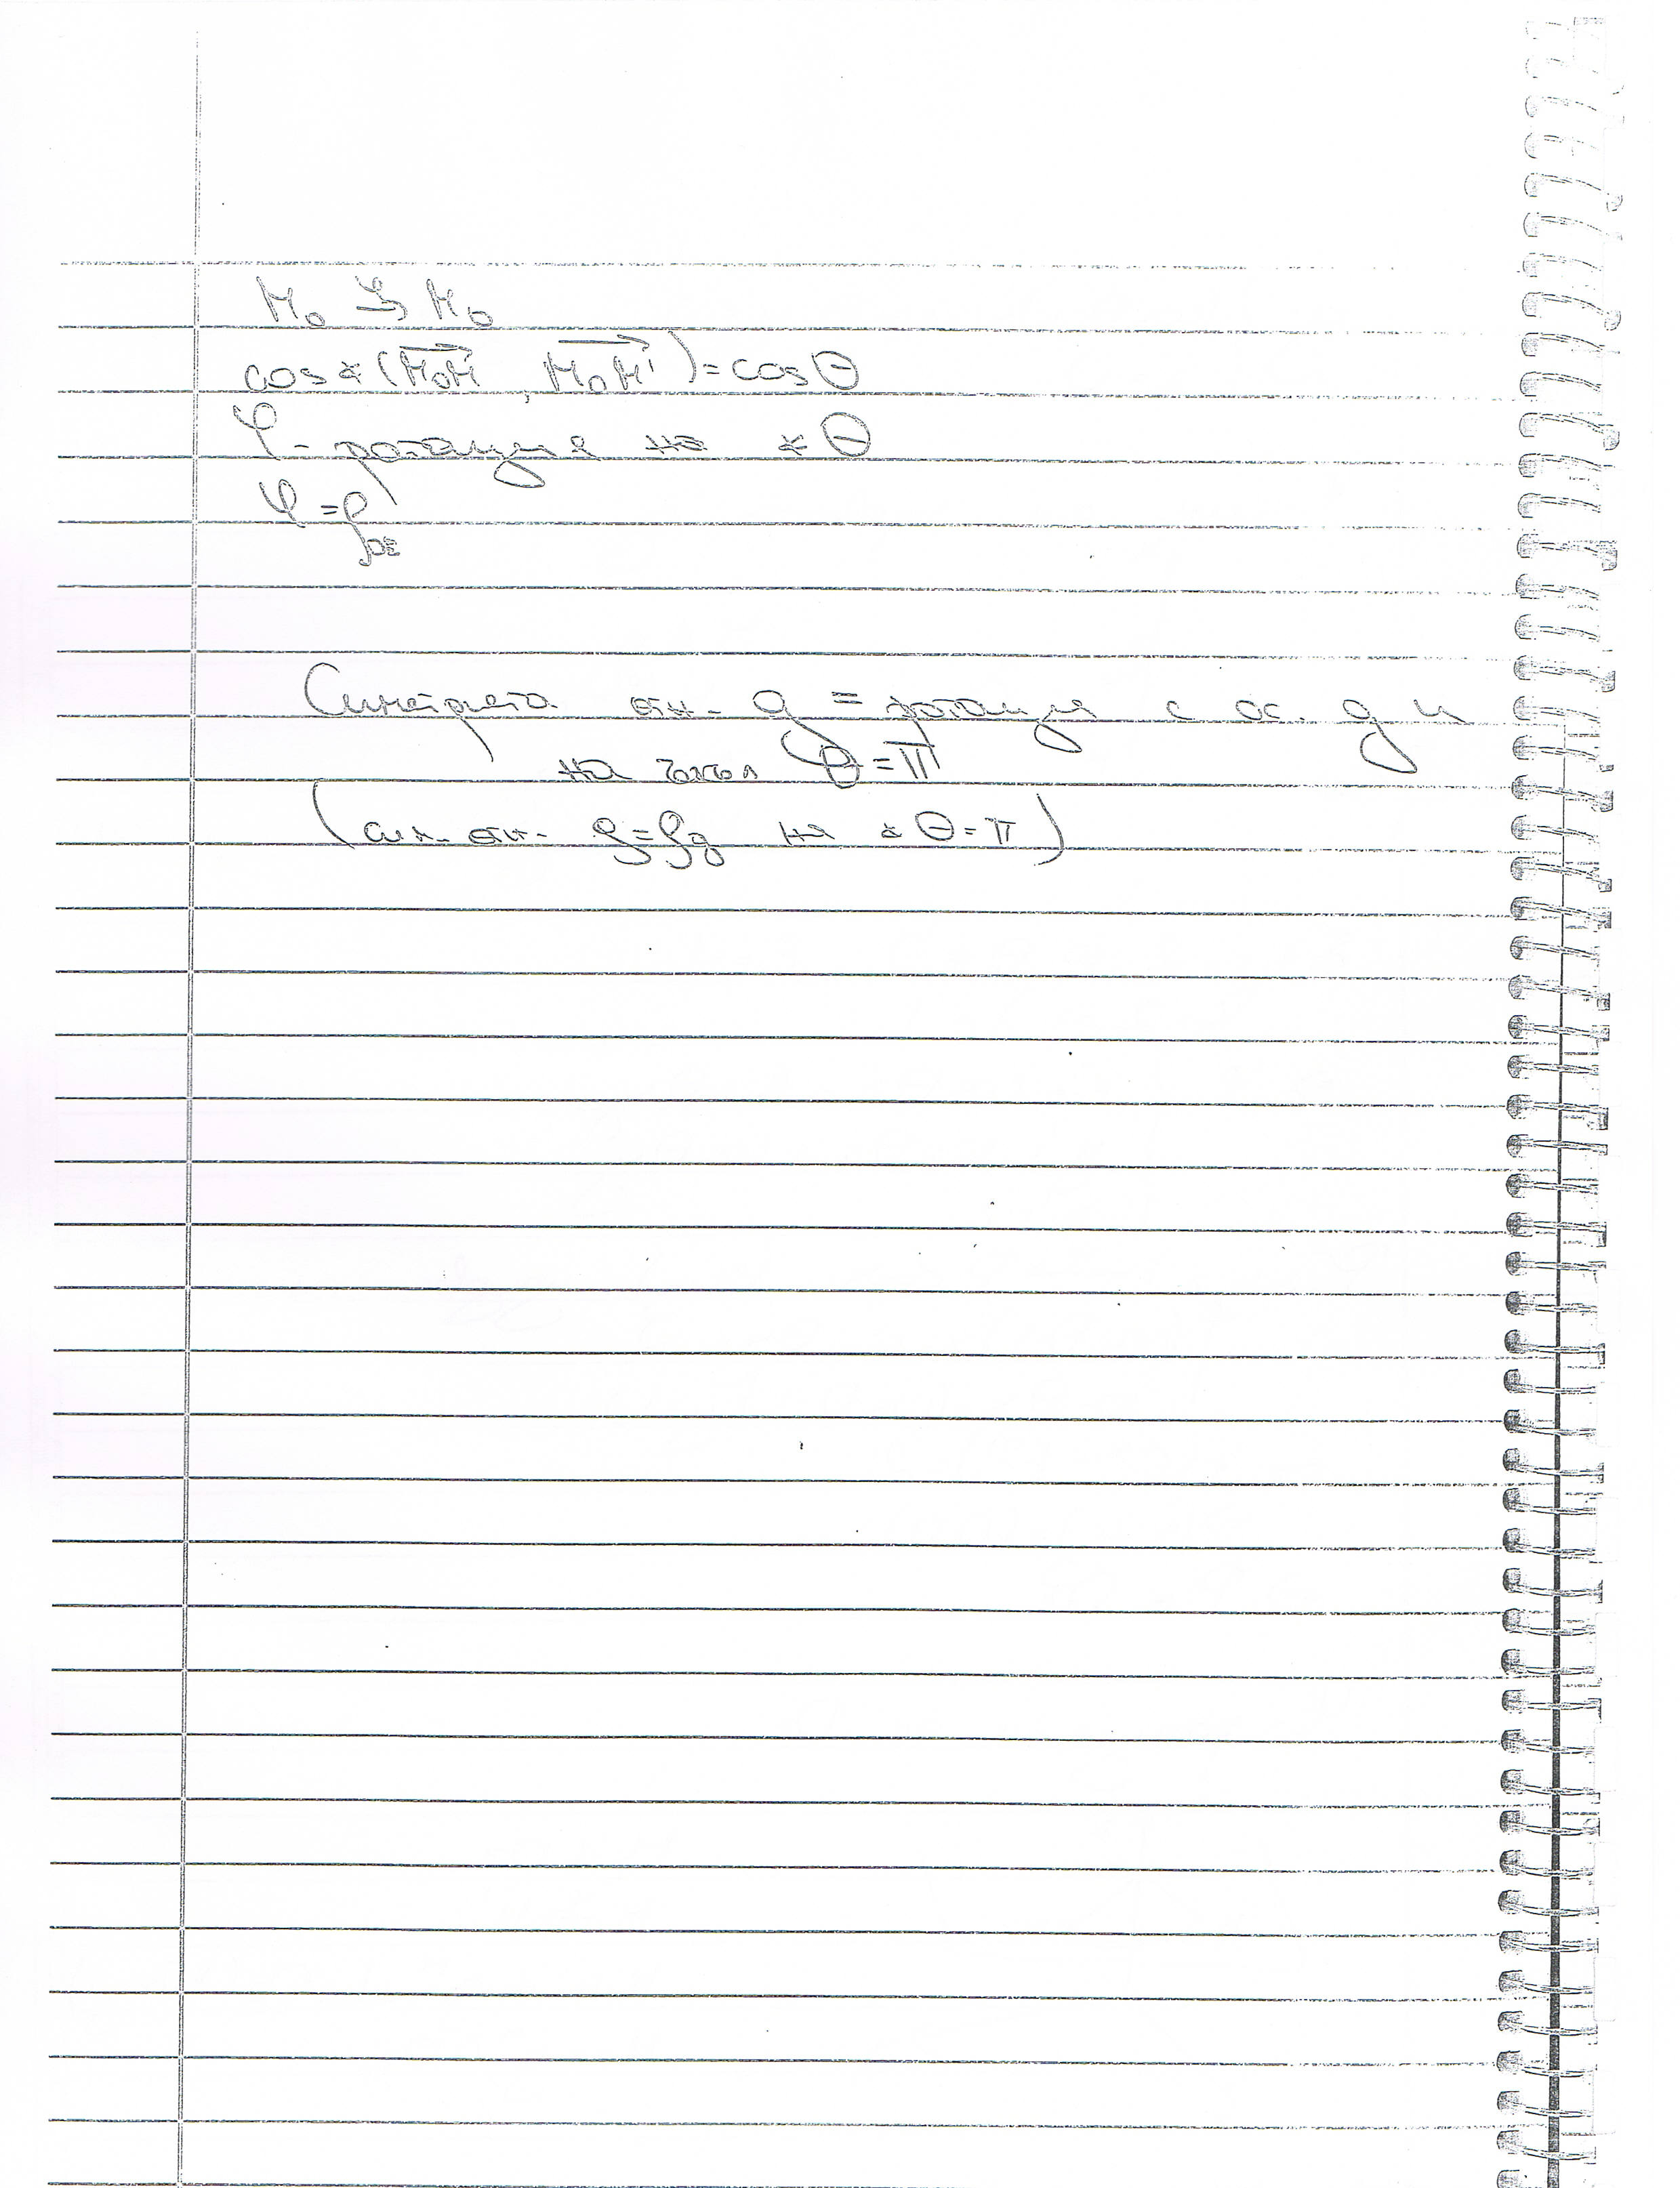 M₀ →^φ M₀
cos ∢(M₀M, M₀M') = cos θ
φ - ротация на ∢ θ
φ = ρ
Симетрията отн. g = ротация с ос. g и
на ъгъл θ = π
(сим. отн. g = ρg на ∢ θ = π)